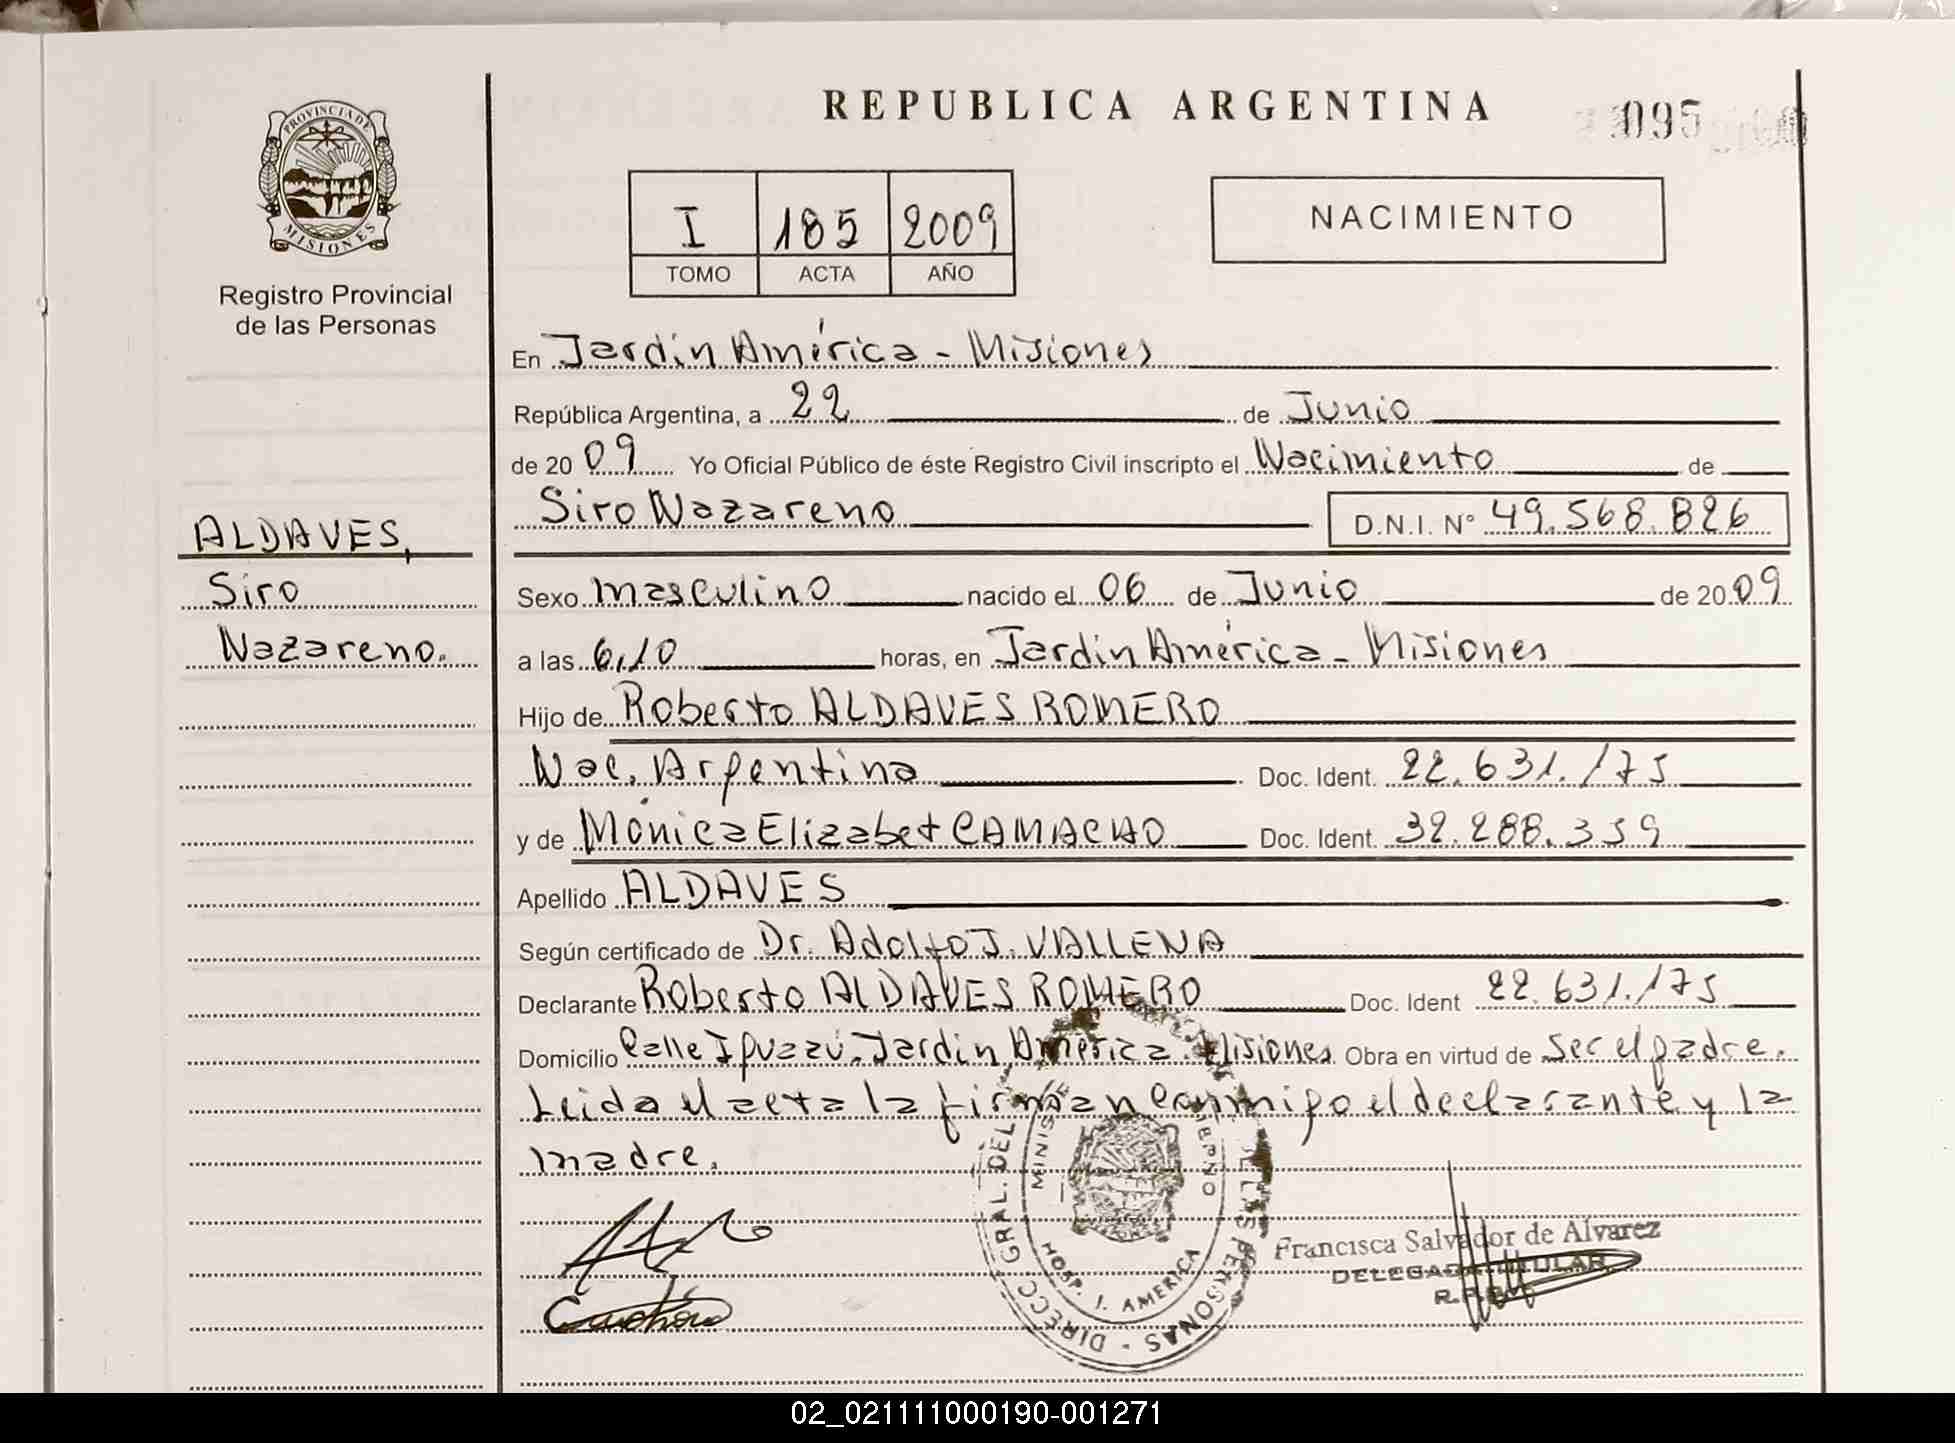 PROVINCIA DE
MISIONES
Registro Provincial
de las Personas
ALDAVES,
Siro
Nazareno.
REPUBLICA ARGENTINA
095
I 185 2009
TOMO ACTA AÑO
NACIMIENTO
En Jardín América - Misiones
República Argentina, a 22 de Junio
de 20 09 Yo Oficial Público de éste Registro Civil inscripto el Nacimiento de
Siro Nazareno D.N.I. N° 49.568.826
Sexo masculino nacido el 06 de Junio de 20 09
a las 6,10 horas, en Jardín América - Misiones
Hijo de Roberto ALDAVES ROMERO
Nac. Argentina Doc. Ident. 22.631.175
y de Mónica Elizabet CAMACHO Doc. Ident. 32.288.359
Apellido ALDAVES
Según certificado de Dr. Adolfo J. VALLENA
Declarante Roberto ALDAVES ROMERO Doc. Ident 22.631.175
Domicilio Calle Iguazú. Jardín América. Misiones Obra en virtud de ser el padre.
Leída el acta la firman conmigo el declarante y la
madre.
DIRECC GRAL. DE LAS PERSONAS
HOSP. J. AMERICA
Francisca Salvador de Alvarez
DELEGADA TITULAR
02_021111000190-001271